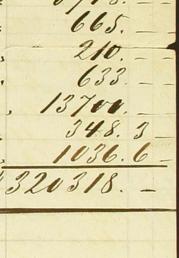 665. —
210. —
633. —
13700. —
348. 3 —
1036. 6 —
320318. —